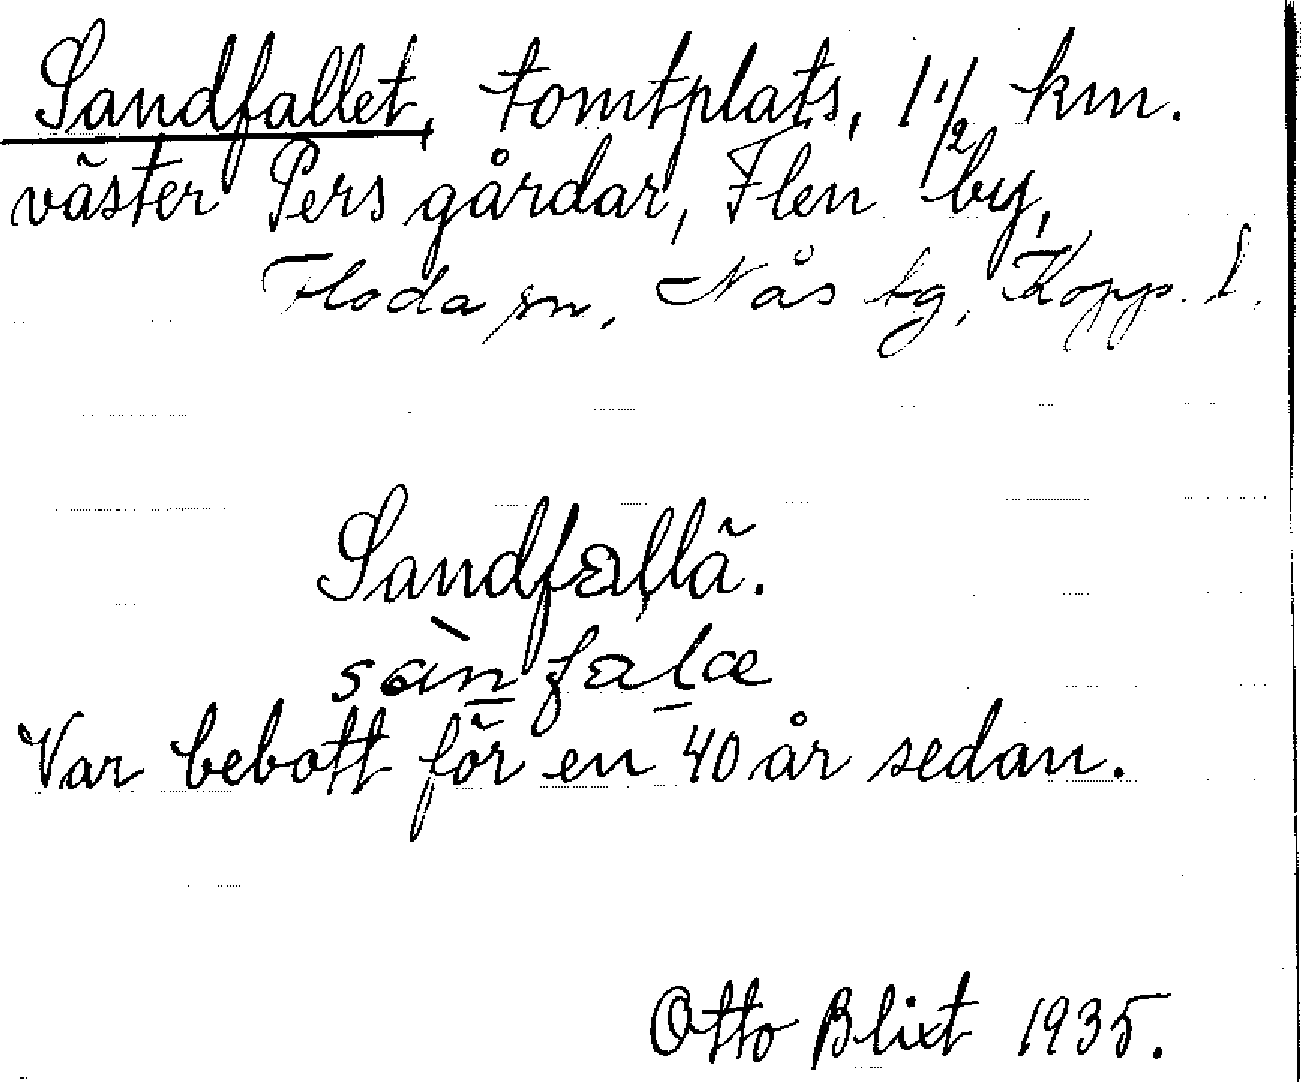 Sandfallet, tomtplats, 1 1/2 km.
väster Pers gårdar, Flen by,
Floda sn, Nås bg, Kopp. l.
Sandfallä.
sàn falæ
Var bebott för en 40 år sedan.
Otto Blixt 1935.